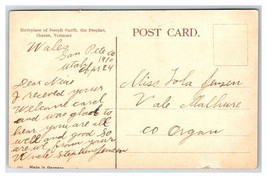 Birthplace of Joseph Smith, the Prophet,
Sharon, Vermont
POST CARD.
Wales
San Pete co
Utah 1910
Sept 24
Dear Niece
I receved yours
Wellcome card
and was glad to
hear you are all
well and good so
are we from your
Uncle Stephen Jensen
Miss Iola Jensen
Vale Malhure
co Oregon